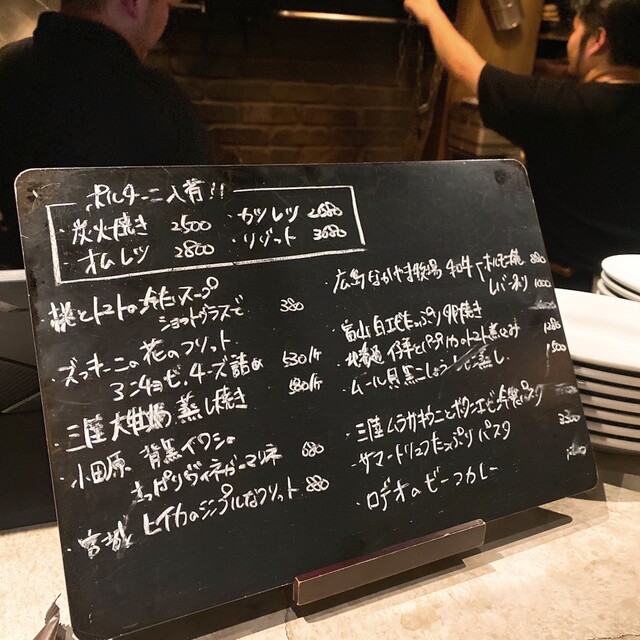 ポルチーニ入荷!!
・炭火焼き 2500
・カツレツ 2680
オムレツ 2800
・リゾット 3680
桃とトマトの冷たいスープ
ショットグラスで 380
・ズッキーニの花のフリット
アンチョビ、チーズ詰め 630/ケ
・三陸 大牡蠣 蒸し焼き 580/ケ
・小田原 背黒イワシの
さっぱりヴィネガーマリネ 680
・宮城 ヒイカのシンプルなフリット
広島なかやま牧場
レバ 1000
富山白エビたっぷり卵焼き
北海道 仔羊とパプリカのトマト煮込み
・ムール貝 黒こしょう 蒸し
・三陸 ムラサキウニとボタンエビ 冷製パスタ
・サマートリュフたっぷりパスタ
・ロデオのビーフカレー